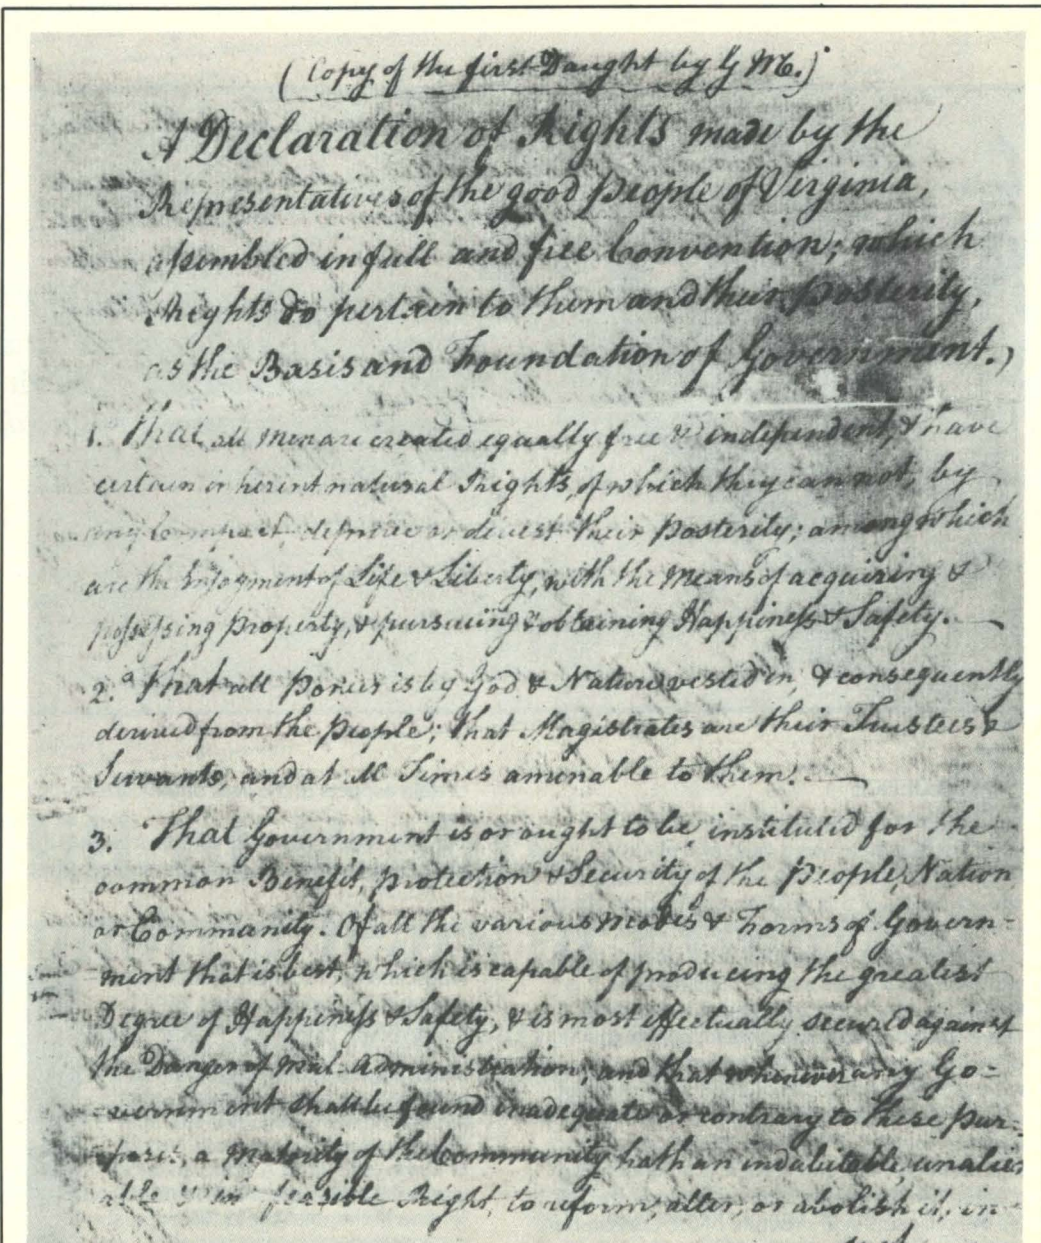 (Copy of the first Daught by G M.)
A Declaration of Rights made by the
Representatives of the good people of Virginia,
assembled in full and free Convention; which
Rights do pertain to them and their posterity,
as the Basis and Foundation of Government.)
1. That all men are created equally free & independent, & have
certain inherent natural Rights, of which they cannot, by
any Compact, deprive or devest their Posterity; among which
are the Enjoyment of Life & Liberty, with the Means of acquiring &
possessing property, & pursueing & obtaining Happiness & Safety.
2.d That all Power is by God & Nature vested in, & consequently
derived from the People; that Magistrates are their Trustees &
Servants, and at all Times amenable to them.
3. That Government is or ought to be, instituted for the
common Benefit, protection & Security of the People, Nation
or Community. Of all the various Modes & Forms of Govern-
ment that is best, which is capable of producing the greatest
Degree of Happiness & Safety, & is most effectually secured against
the Danger of mal-administration; and that whenever any Go-
vernment shall be found inadequate or contrary to these pur-
poses, a Majority of the Community hath an indubitable, unalien
able & indefeasible Right, to reform, alter, or abolish it, in